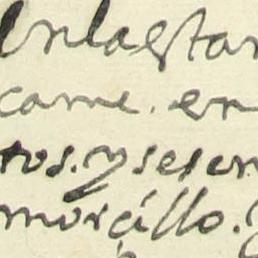 En la estan
came. en
tos. y sesen
morcillo. y